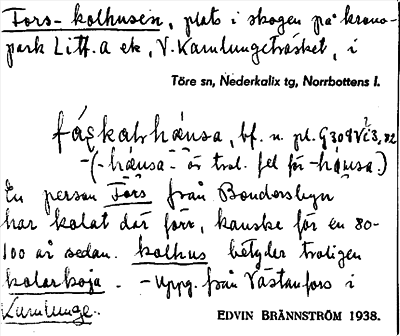 Fors-kolhusen, plats i skogen på krono-
park Litt. a ek, V. Kamlungeträsket, i
Töre sn, Nederkalix tg, Norrbottens l.
bf. n. pl.
(-hænsa- är trol. fel för -hånsa.)
En person Fors från Bondersbyn
har kolat där förr, kanske för en 80-
100 år sedan. kolhus betyder troligen
kolarkoja. - Uppg. från Västanfors i
Kamlunge.
EDVIN BRÄNNSTRÖM 1938.